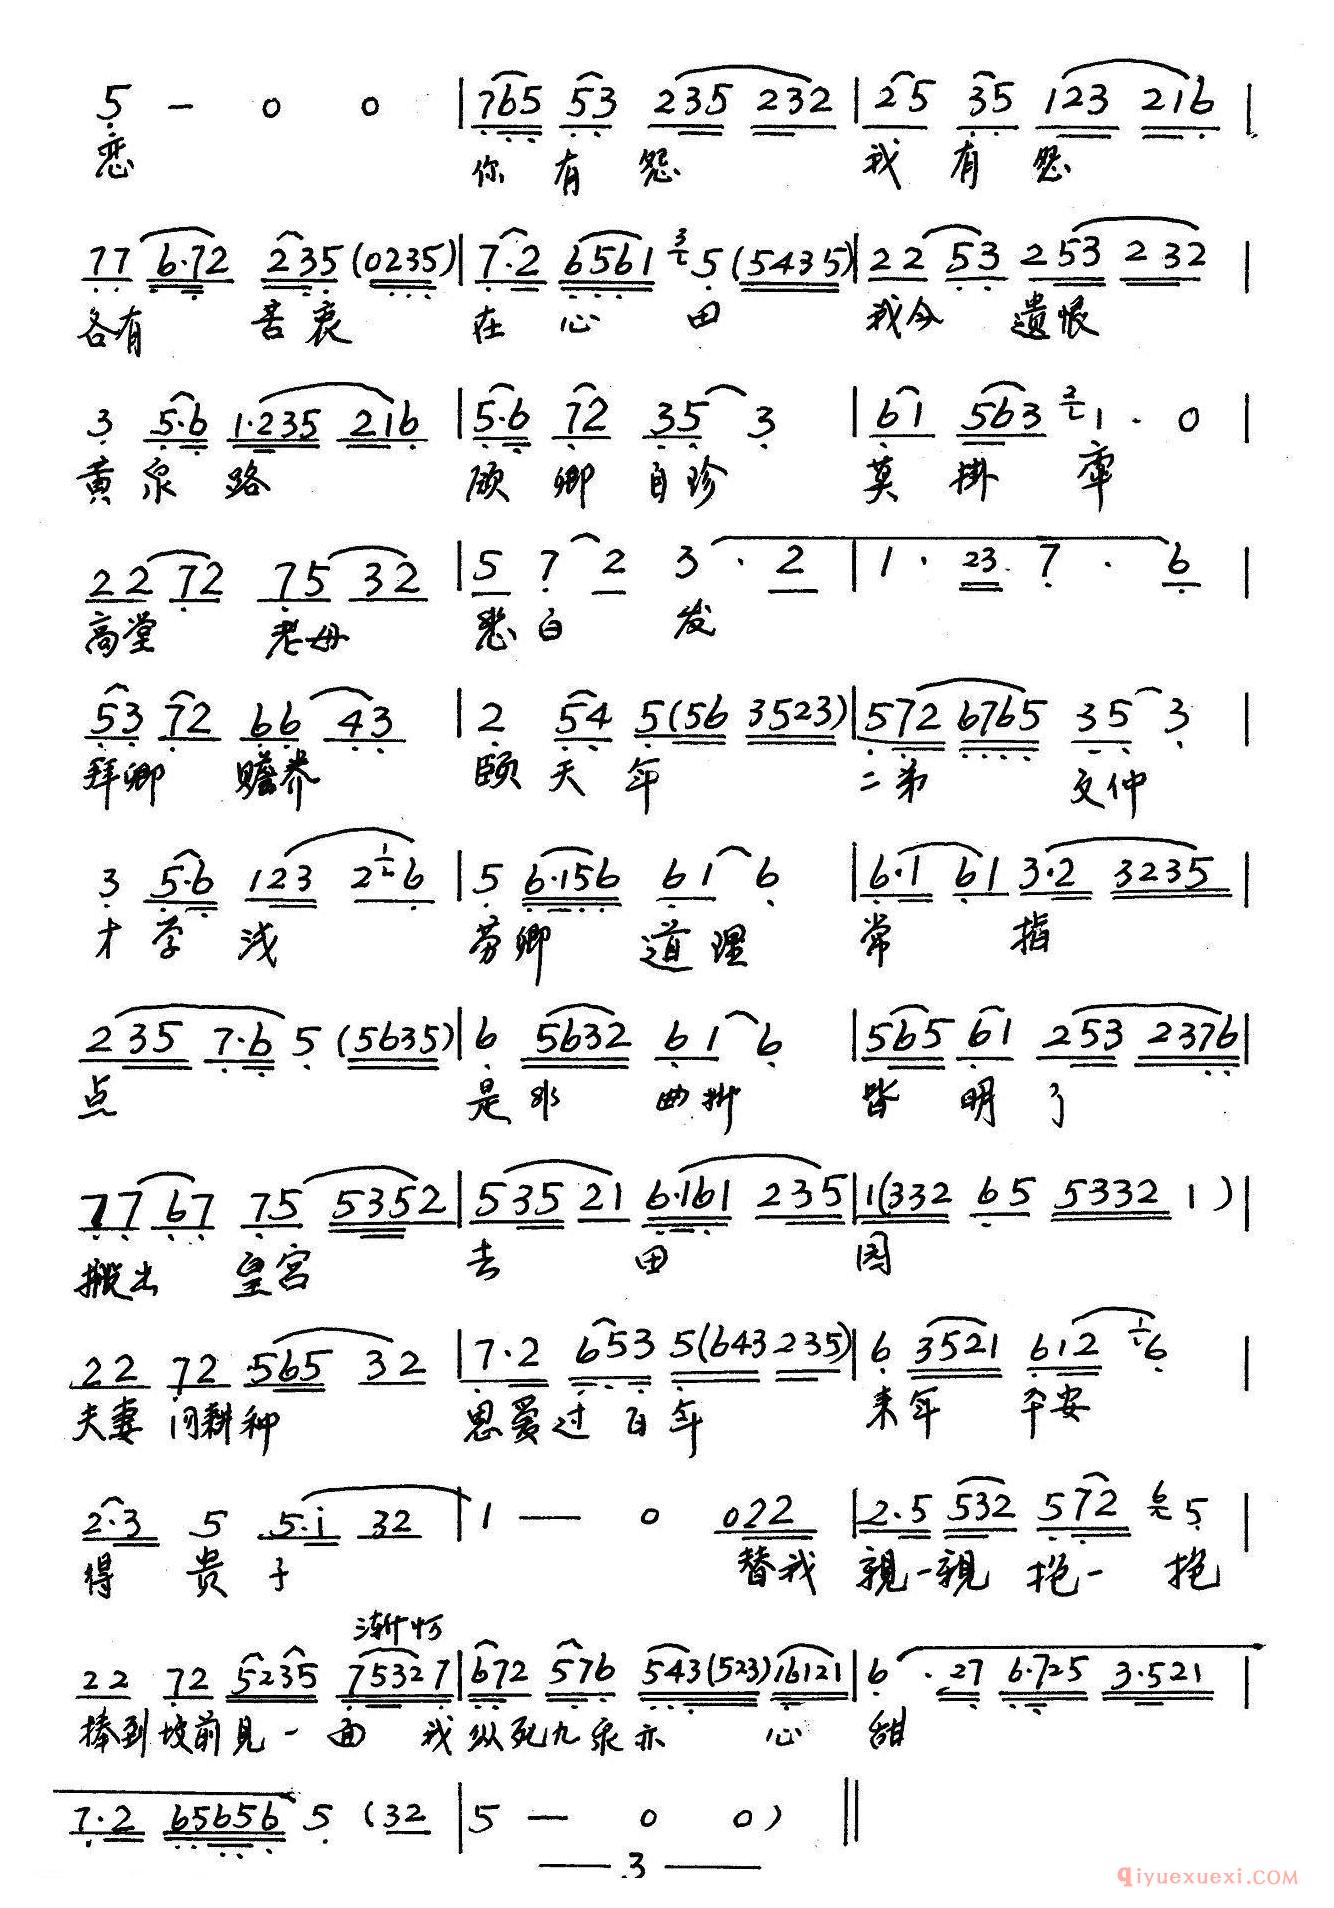 5 - 0 0 | 765 53 235 232 | 25 35 123 216 |
恋 你有怨 我有怨
77 6·72 235 (0235) | 7·2 6561 3 5 (5435) | 22 53 253 232 |
各有 苦衷 在心田 我今 遗恨
3 5·6 1·235 216 | 5·6 72 35 3 | 61 563 2 1· 0 |
黄泉路 顾卿自珍 莫掛牵
22 72 75 32 | 5 7 2 3· 2 | 1· 23 7· 6 |
高堂 老母 悲白发
53 72 66 43 | 2 54 5(56 3523) | 572 6765 35 3 |
拜卿 赡养 颐天年 二弟 文仲
3 5·6 123 2 1 6 | 5 6·156 61 6 | 6·1 61 3·2 3235 |
才学浅 劳卿 道理 常 指
235 7·6 5 (5635) | 6 5632 61 6 | 565 61 253 2376 |
点 是非 曲折 皆明了
77 67 75 5352 | 535 21 6·161 235 | 1(332 65 5332 1) |
搬出 皇宫 去 田 园
22 72 565 32 | 7·2 653 5(643 235) | 6 3521 612 1 6 |
夫妻 同耕种 恩爱过百年 来年 平安
2·3 5 5·i 32 | 1 — 0 022 | 2·5 532 572 6 5 |
得 贵 子 替我 親一親 抱一 抱
渐慢
22 72 5235 75327 | 672 576 543(523) 16121 | 6 · 27 6·725 3·521 |
捧到坟前见一面 我纵死九泉亦 心 甜
7·2 65656 5 (32 | 5 — 0 0) ‖
— 3 —
qiyuexuexi.COM